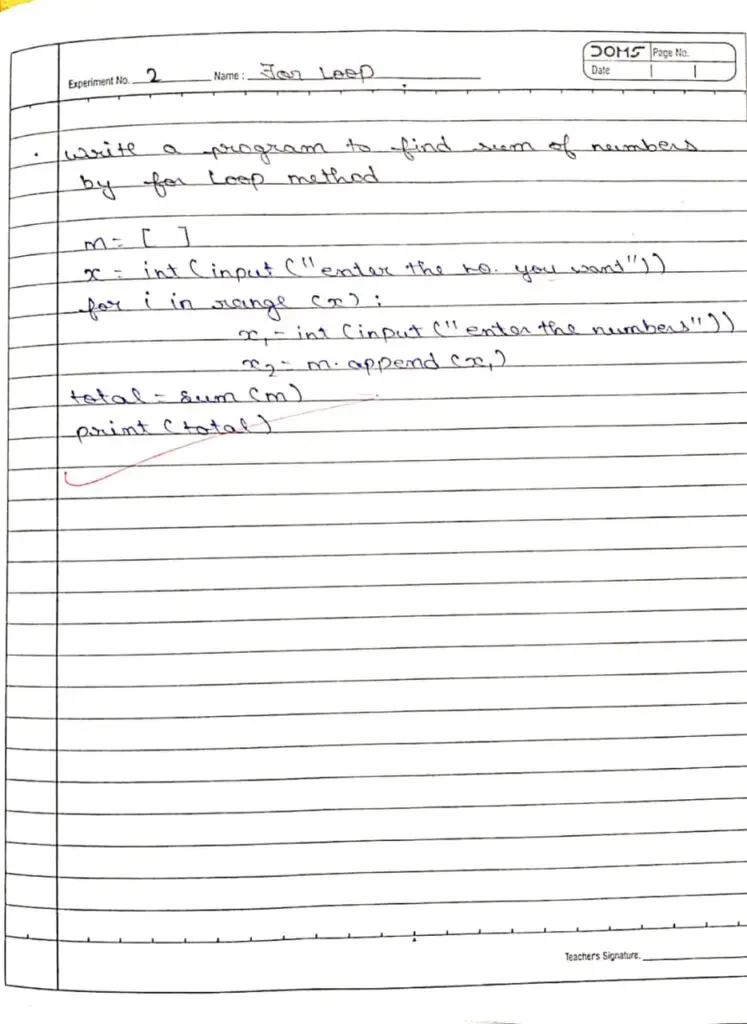 DOMS Page No.
Date
Experiment No. 2 Name: For Loop
. Write a program to find sum of numbers
by for Loop method
m = [ ]
x = int (input ("enter the no. you want"))
for i in range (x) :
x₁ = int (input ("enter the numbers"))
x₂ = m. append (x₁)
total = sum (m)
print (total)
Teacher's Signature.